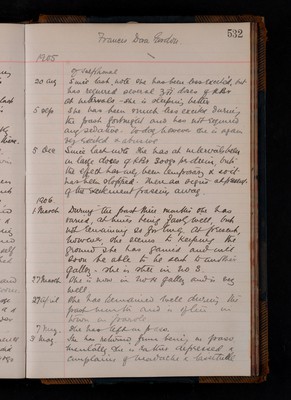 532
Francis Dora Gordon
1905
or confinement
20 Aug Since last note she has been less excited, but
has required several ℨii doses of KBr
at intervals - she is sleeping better
5 Sept She has been much less excited during
the past fortnight and has not required
any sedative. Today however she is again
very excited & abusive
5 Dec Since last note she has at intervals been
on large doses of KBr 300 grs in diem but
the effect has only been temporary & so it
has been stopped. There are signs at present
of the excitement passing away.
1906
1 March During the past nine months she has
varied at times being fairly well, but
not remaining so for long. At present,
however, she seems to keeping the
ground she has gained and will
soon be able to be sent to another
gallery. She is still in No 3.
27 March She is now in No 4 gallery and is very
well.
27 April She has remained well during the
past month and is often in
town on parole
7 May She has left on pass.
3 May She has returned from being on pass
mentally she is rather depressed &
complains of headache & lassitude